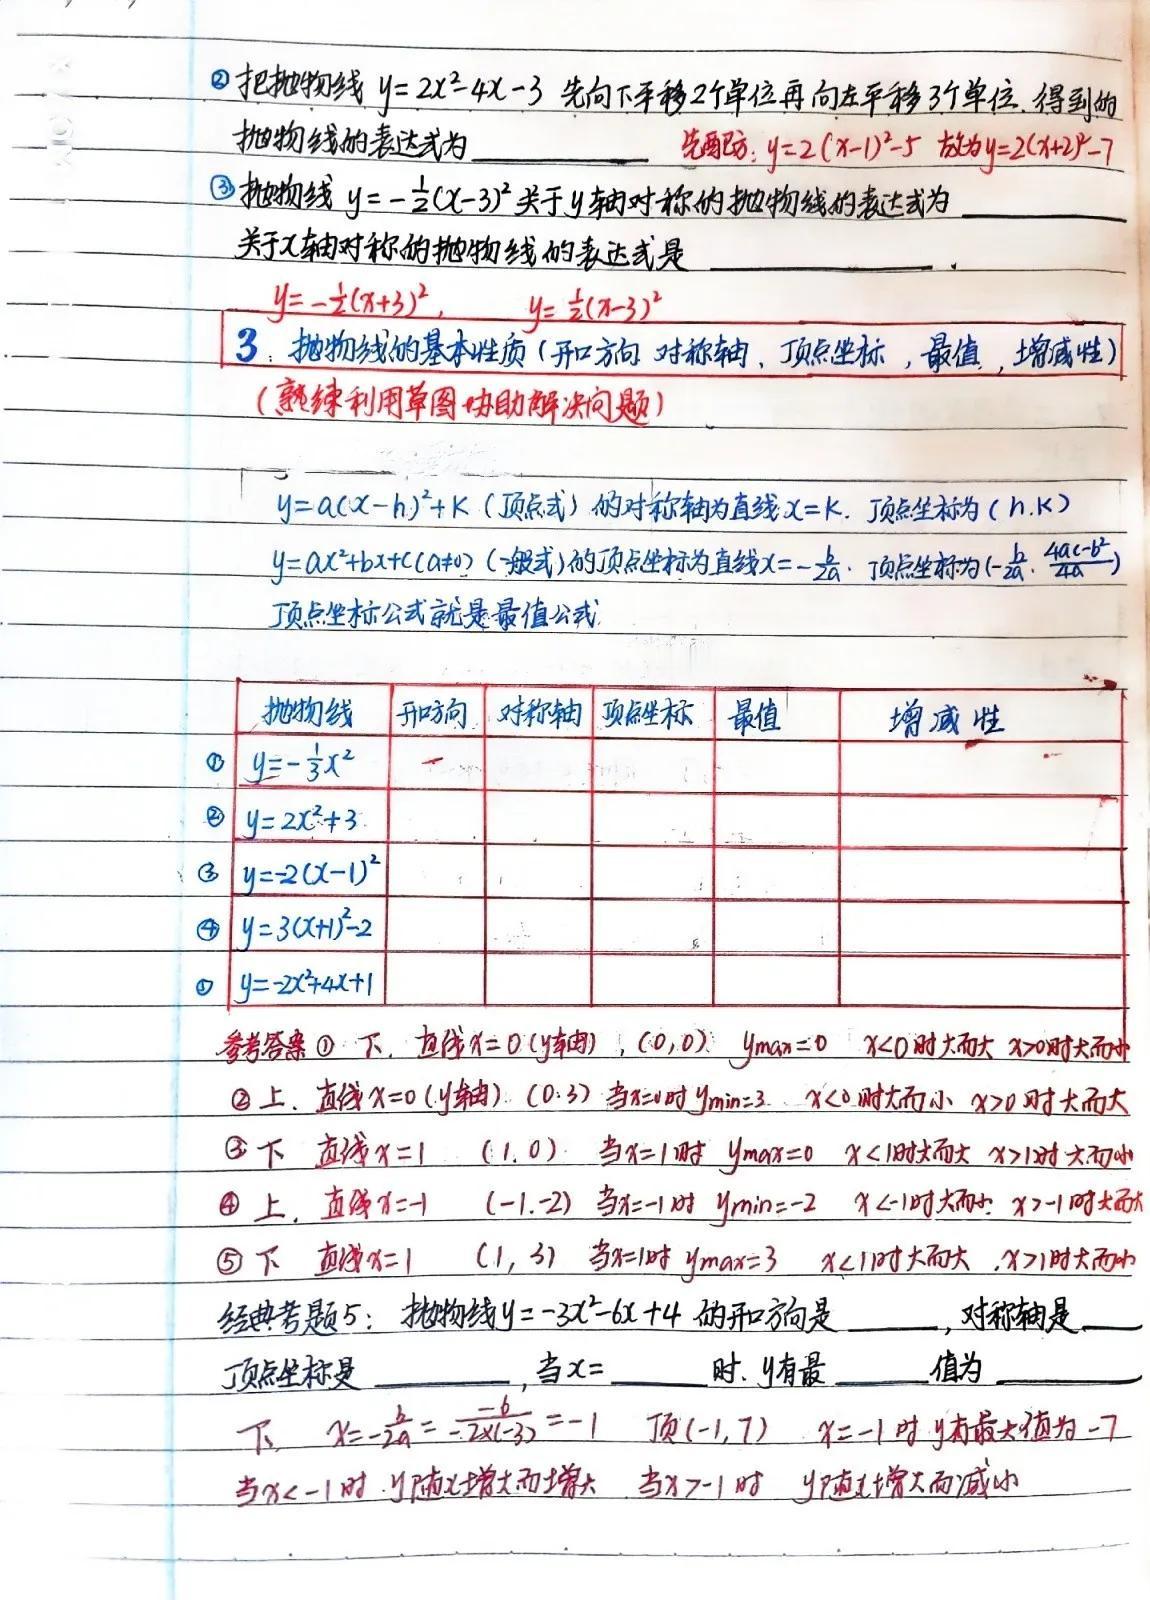 ② 把抛物线 y=2x²-4x-3 先向下平移2个单位再向左平移3个单位.得到的
抛物线的表达式为____________ 先配方: y=2(x-1)²-5 故为y=2(x+2)²-7
③ 抛物线 y=-½(x-3)² 关于y轴对称的抛物线的表达式为____________
关于x轴对称的抛物线的表达式是____________.
y=-½(x+3)², y=½(x-3)²
3. 抛物线的基本性质(开口方向 对称轴、顶点坐标,最值,增减性)
(熟练利用草图协助解决问题)
y=a(x-h)²+K (顶点式) 的对称轴为直线x=K. 顶点坐标为(h.K)
y=ax²+bx+c(a≠0) (一般式)的顶点坐标为直线x=-b/2a. 顶点坐标为(-b/2a. 4ac-b²/4a)
顶点坐标公式就是最值公式.
抛物线 开口方向 对称轴 顶点坐标 最值 增减性
① y=-⅓x²
② y=2x²+3
③ y=-2(x-1)²
④ y=3(x+1)²-2
⑤ y=-2x²+4x+1
参考答案 ① 下. 直线x=0(y轴), (0,0) ymax=0 x<0时大而大 x>0时大而小
② 上. 直线x=0(y轴) (0.3) 当x=0时 ymin=3 x<0时大而小 x>0时大而大
③ 下 直线x=1 (1.0) 当x=1时 ymax=0 x<1时大而大 x>1时大而小
④ 上. 直线x=-1 (-1.-2) 当x=-1时 ymin=-2 x<-1时大而小 x>-1时大而大
⑤ 下 直线x=1 (1,3) 当x=1时 ymax=3 x<1时大而大.x>1时大而小
经典考题5: 抛物线y=-3x²-6x+4 的开口方向是______,对称轴是____
顶点坐标是________,当x=______时.y有最______值为________
下 x=-b/2a=-6/-2×(-3)=-1 顶(-1,7) x=-1时y有最大值为-7
当x<-1时 y随x增大而增大 当x>-1时 y随x增大而减小